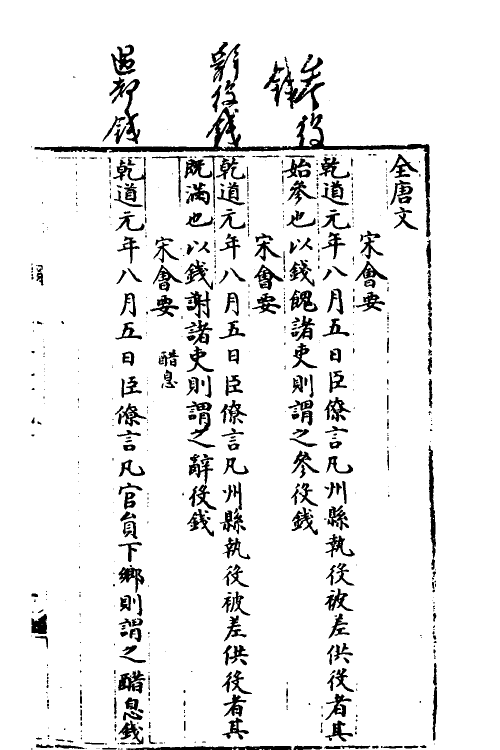 参役錢
辭役錢
過都錢
全唐文
宋會要
乾道元年八月五日臣僚言凡州縣執役被差供役者其
始參也以錢餽諸吏則謂之參役錢
宋會要
乾道元年八月五日臣僚言凡州縣執役被差供役者其
既滿也以錢謝諸吏則謂之辭役錢
宋會要 醋息
乾道元年八月五日臣僚言凡官員下鄉則謂之醋息錢